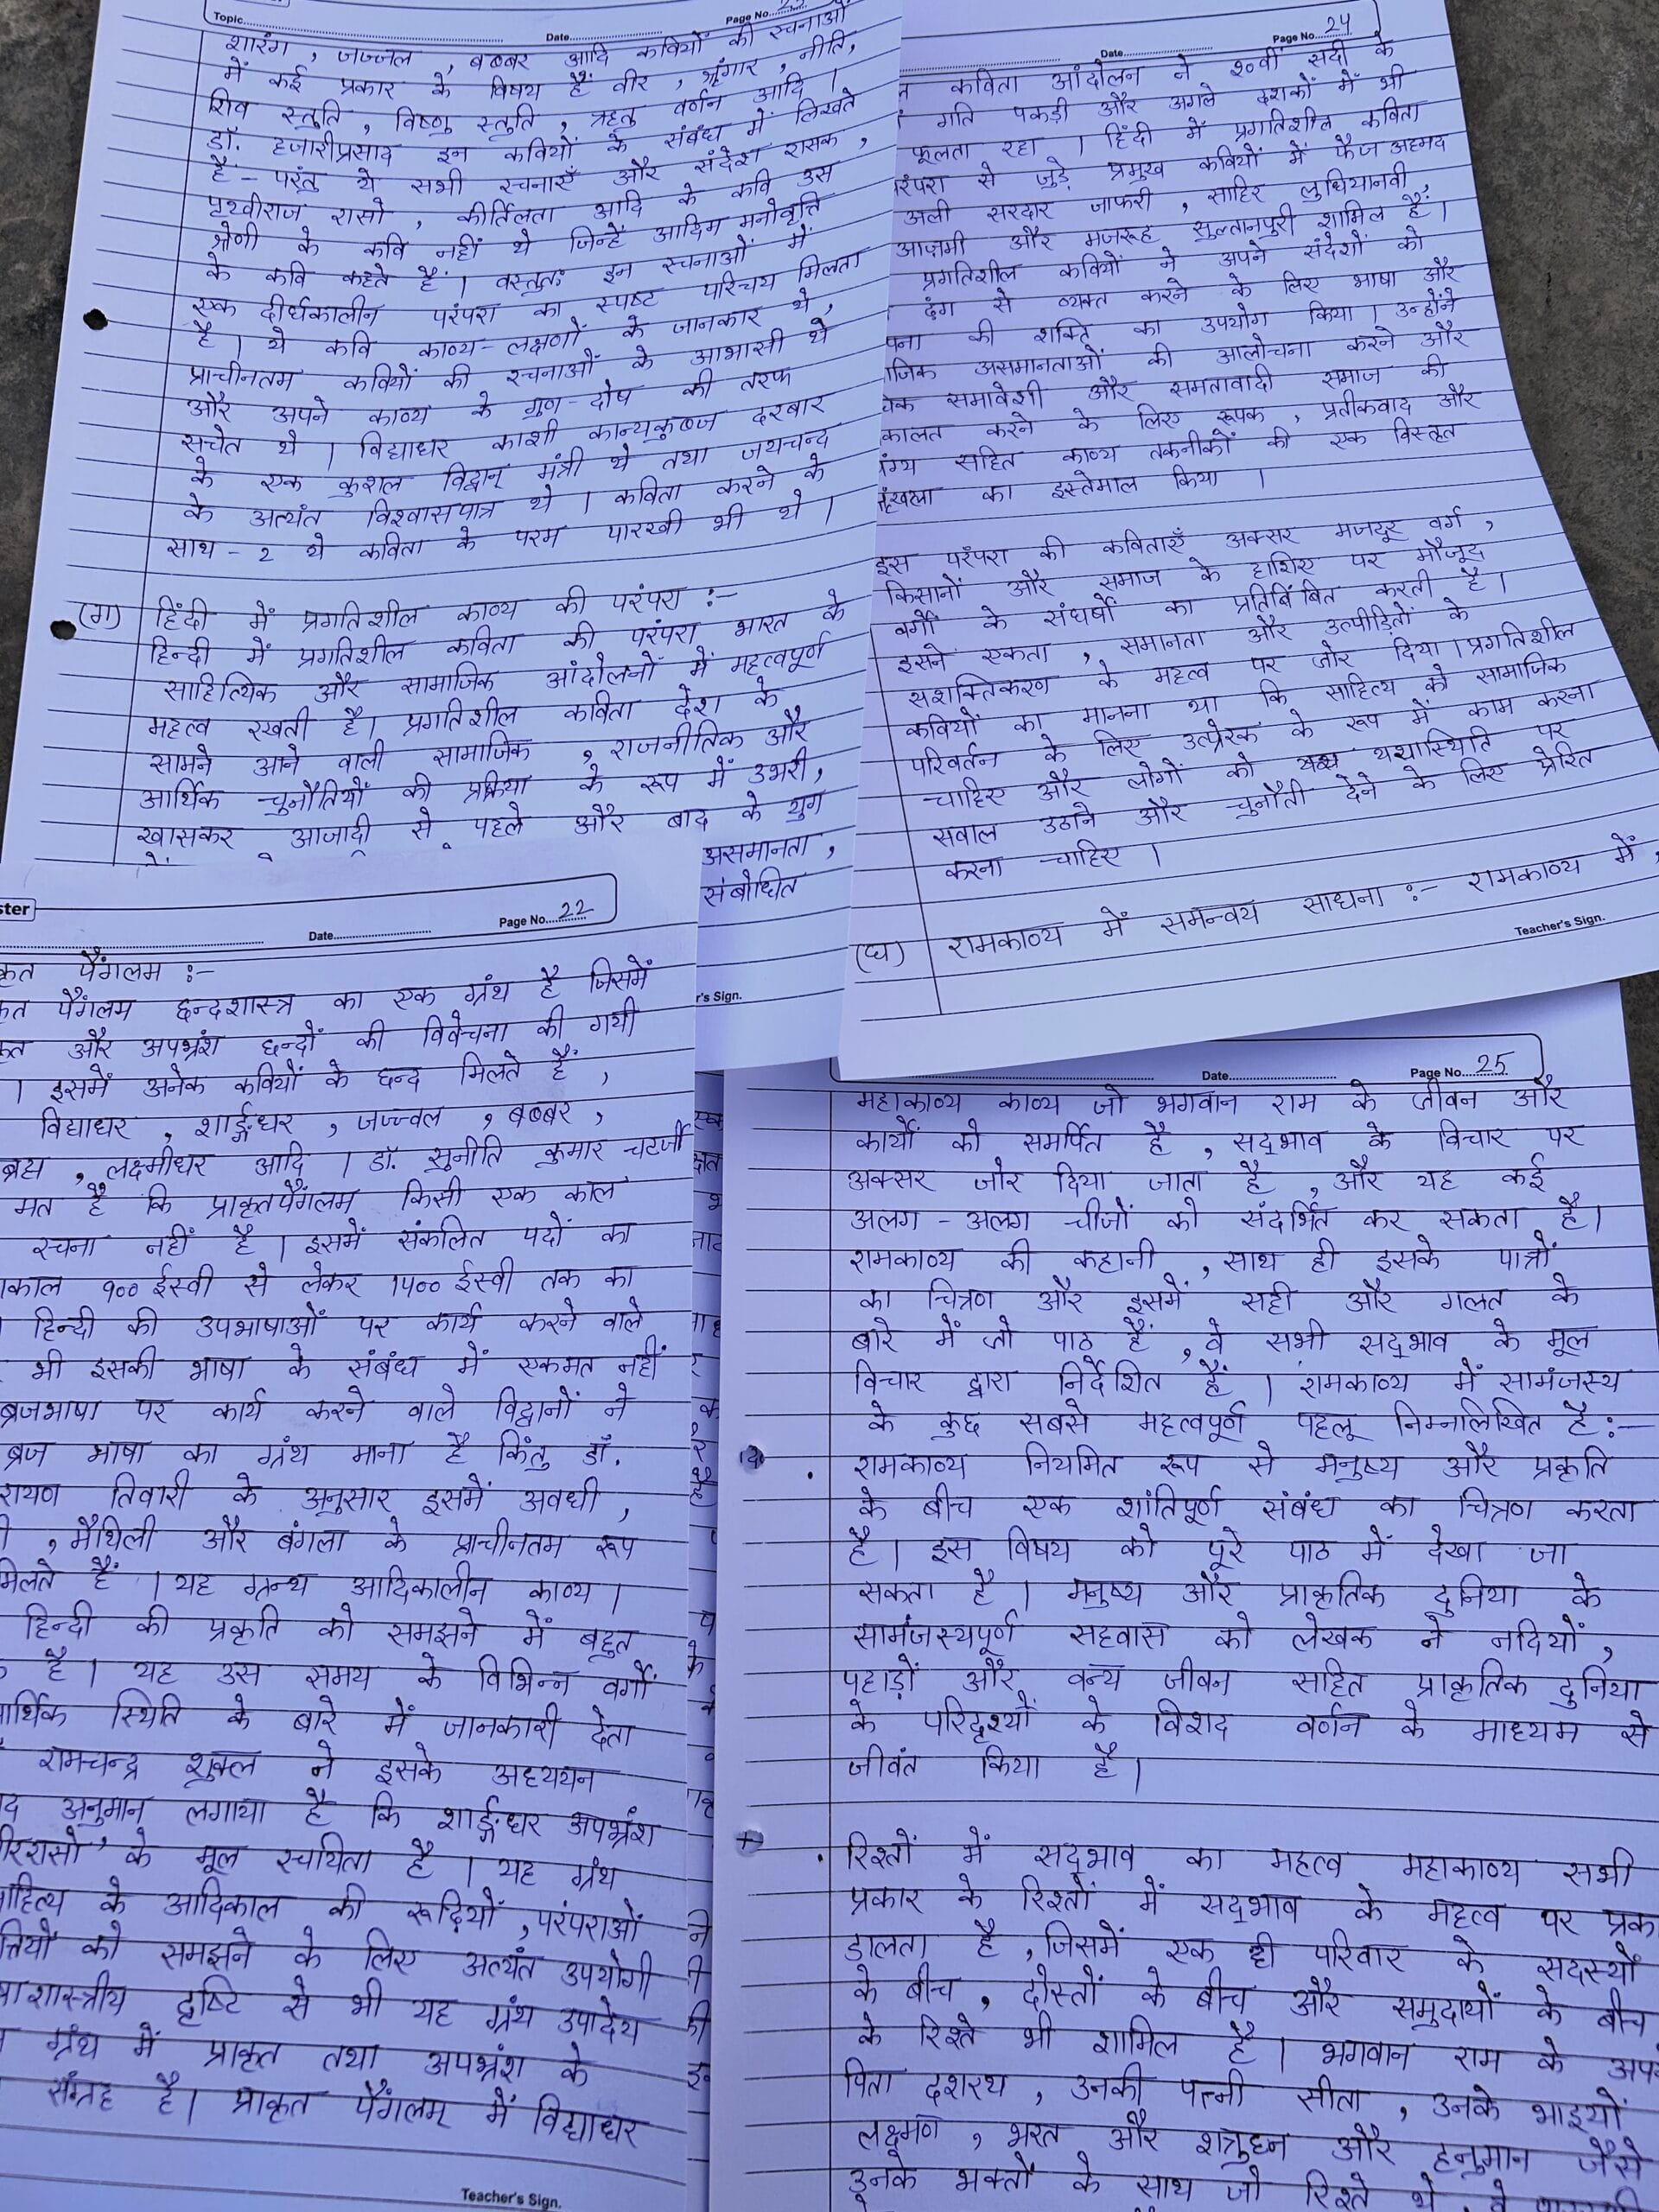 Page No. 22
Date
पैंगलम :-
पैंगलम छन्दशास्त्र का एक ग्रंथ है जिसमें
और अपभ्रंश छन्दों की विवेचना की गयी
। इसमें अनेक कवियों के छन्द मिलते हैं,
विद्याधर, शार्ङ्गधर, जज्जवल, बब्बर,
ब्रह्म, लक्ष्मीधर आदि । डॉ. सुनीति कुमार चटर्जी
मत है कि प्राकृतपैंगलम किसी एक काल
रचना नहीं है । इसमें संकलित पदों का
९०० ईस्वी से लेकर 1५०० ईस्वी तक का
हिन्दी की उपभाषाओं पर कार्य करने वाले
भी इसकी भाषा के संबंध में एकमत नहीं
ब्रजभाषा पर कार्य करने वाले विद्वानों ने
ब्रज भाषा का ग्रंथ माना है किंतु डॉ.
तिवारी के अनुसार इसमें अवधी,
, मैथिली और बंगला के प्राचीनतम रूप
मिलते हैं । यह ग्रन्थ आदिकालीन काव्य ।
हिन्दी की प्रकृति को समझने में बहुत
है । यह उस समय के विभिन्न वर्गों
स्थिति के बारे में जानकारी देता
रामचन्द्र शुक्ल ने इसके अध्ययन
अनुमान लगाया है कि शार्ङ्गधर अपभ्रंश
के मूल रचयिता है । यह ग्रंथ
के आदिकाल की रूढ़ियों, परंपराओं
को समझने के लिए अत्यंत उपयोगी
दृष्टि से भी यह ग्रंथ उपादेय
ग्रंथ में प्राकृत तथा अपभ्रंश के
संग्रह है। प्राकृत पैंगलम् में विद्याधर
Teacher's Sign.
Topic
Date
Page No.
शारंग, जज्जल, बब्बर आदि कवियों की रचनाओं
में कई प्रकार के विषय हैं वीर, श्रृंगार, नीति,
शिव स्तुति, विष्णु स्तुति, ऋतु वर्णन आदि ।
डॉ. हजारीप्रसाद इन कवियों के संबंध में लिखते
है - परंतु ये सभी रचनाएँ और संदेश रासक,
पृथ्वीराज रासो, कीर्तिलता आदि के कवि उस
श्रेणी के कवि नहीं थे जिन्हें आदिम मनोवृत्ति
के कवि कहते हैं । वस्तुतः इन रचनाओं में
एक दीर्घकालीन परंपरा का स्पष्ट परिचय मिलता
है । ये कवि काव्य-लक्षणों के जानकार थे,
प्राचीनतम कवियों की रचनाओं के आभासी थे
और अपने काव्य के गुण-दोष की तरफ
सचेत थे । विद्याधर काशी कान्यकुब्ज दरबार
के एक कुशल विद्वान् मंत्री थे तथा जयचन्द
के अत्यंत विश्वासपात्र थे । कविता करने के
साथ-2 ये कविता के परम पारखी भी थे ।
(ग) हिंदी में प्रगतिशील काव्य की परंपरा :-
हिन्दी में प्रगतिशील कविता की परंपरा भारत के
साहित्यिक और सामाजिक आंदोलनों में महत्वपूर्ण
महत्व रखती है। प्रगतिशील कविता देश के
सामने आने वाली सामाजिक, राजनीतिक और
आर्थिक चुनौतियों की प्रक्रिया के रूप में उभरी,
खासकर आजादी से पहले और बाद के युग
असमानता,
संबोधित
r's Sign.
Date
Page No. 24
कविता आंदोलन ने २०वीं सदी के
गति पकड़ी और अगले दशकों में भी
फूलता रहा । हिंदी में प्रगतिशील कविता
से जुड़े प्रमुख कवियों में फैज अहमद
अली सरदार जाफरी, साहिर लुधियानवी,
आज़मी और मजरूह सुल्तानपुरी शामिल हैं।
प्रगतिशील कवियों ने अपने संदेशों को
ढंग से व्यक्त करने के लिए भाषा और
की शक्ति का उपयोग किया । उन्होंने
असमानताओं की आलोचना करने और
समावेशी और समतावादी समाज की
करने के लिए रूपक, प्रतीकवाद और
सहित काव्य तकनीकों की एक विस्तृत
का इस्तेमाल किया ।
इस परंपरा की कविताएँ अक्सर मजदूर वर्ग,
किसानों और समाज के हाशिए पर मौजूद
वर्गों के संघर्षों का प्रतिबिंबित करती है।
इसने एकता, समानता और उत्पीड़ितों के
सशक्तिकरण के महत्व पर जोर दिया । प्रगतिशील
कवियों का मानना था कि साहित्य को सामाजिक
परिवर्तन के लिए उत्प्रेरक के रूप में काम करना
चाहिए और लोगों को यथास्थिति पर
सवाल उठाने और चुनौती देने के लिए प्रेरित
करना चाहिए ।
(घ) रामकाव्य में समन्वय साधना :- रामकाव्य में,
Teacher's Sign.
Date
Page No. 25
महाकाव्य काव्य जो भगवान राम के जीवन और
कार्यों को समर्पित है, सद्भाव के विचार पर
अक्सर जोर दिया जाता है, और यह कई
अलग-अलग चीजों को संदर्भित कर सकता है।
रामकाव्य की कहानी, साथ ही इसके पात्रों
का चित्रण और इसमें सही और गलत के
बारे में जो पाठ हैं, वे सभी सद्भाव के मूल
विचार द्वारा निर्देशित हैं । रामकाव्य में सामंजस्य
के कुछ सबसे महत्वपूर्ण पहलू निम्नलिखित है:-
• रामकाव्य नियमित रूप से मनुष्य और प्रकृति
के बीच एक शांतिपूर्ण संबंध का चित्रण करता
है । इस विषय को पूरे पाठ में देखा जा
सकता है । मनुष्य और प्राकृतिक दुनिया के
सामंजस्यपूर्ण सहवास को लेखक ने नदियों,
पहाड़ों और वन्य जीवन सहित प्राकृतिक दुनिया
के परिदृश्यों के विशद वर्णन के माध्यम से
जीवंत किया है ।
• रिश्तों में सद्भाव का महत्व महाकाव्य सभी
प्रकार के रिश्तों में सद्भाव के महत्व पर
डालता है, जिसमें एक ही परिवार के सदस्यों
के बीच, दोस्तों के बीच और समुदायों के बीच
के रिश्ते भी शामिल है । भगवान राम के
पिता दशरथ, उनकी पत्नी सीता, उनके भाइयों
लक्ष्मण, भरत और शत्रुघ्न और हनुमान जैसे
उनके भक्तों के साथ जो रिश्ते थे,